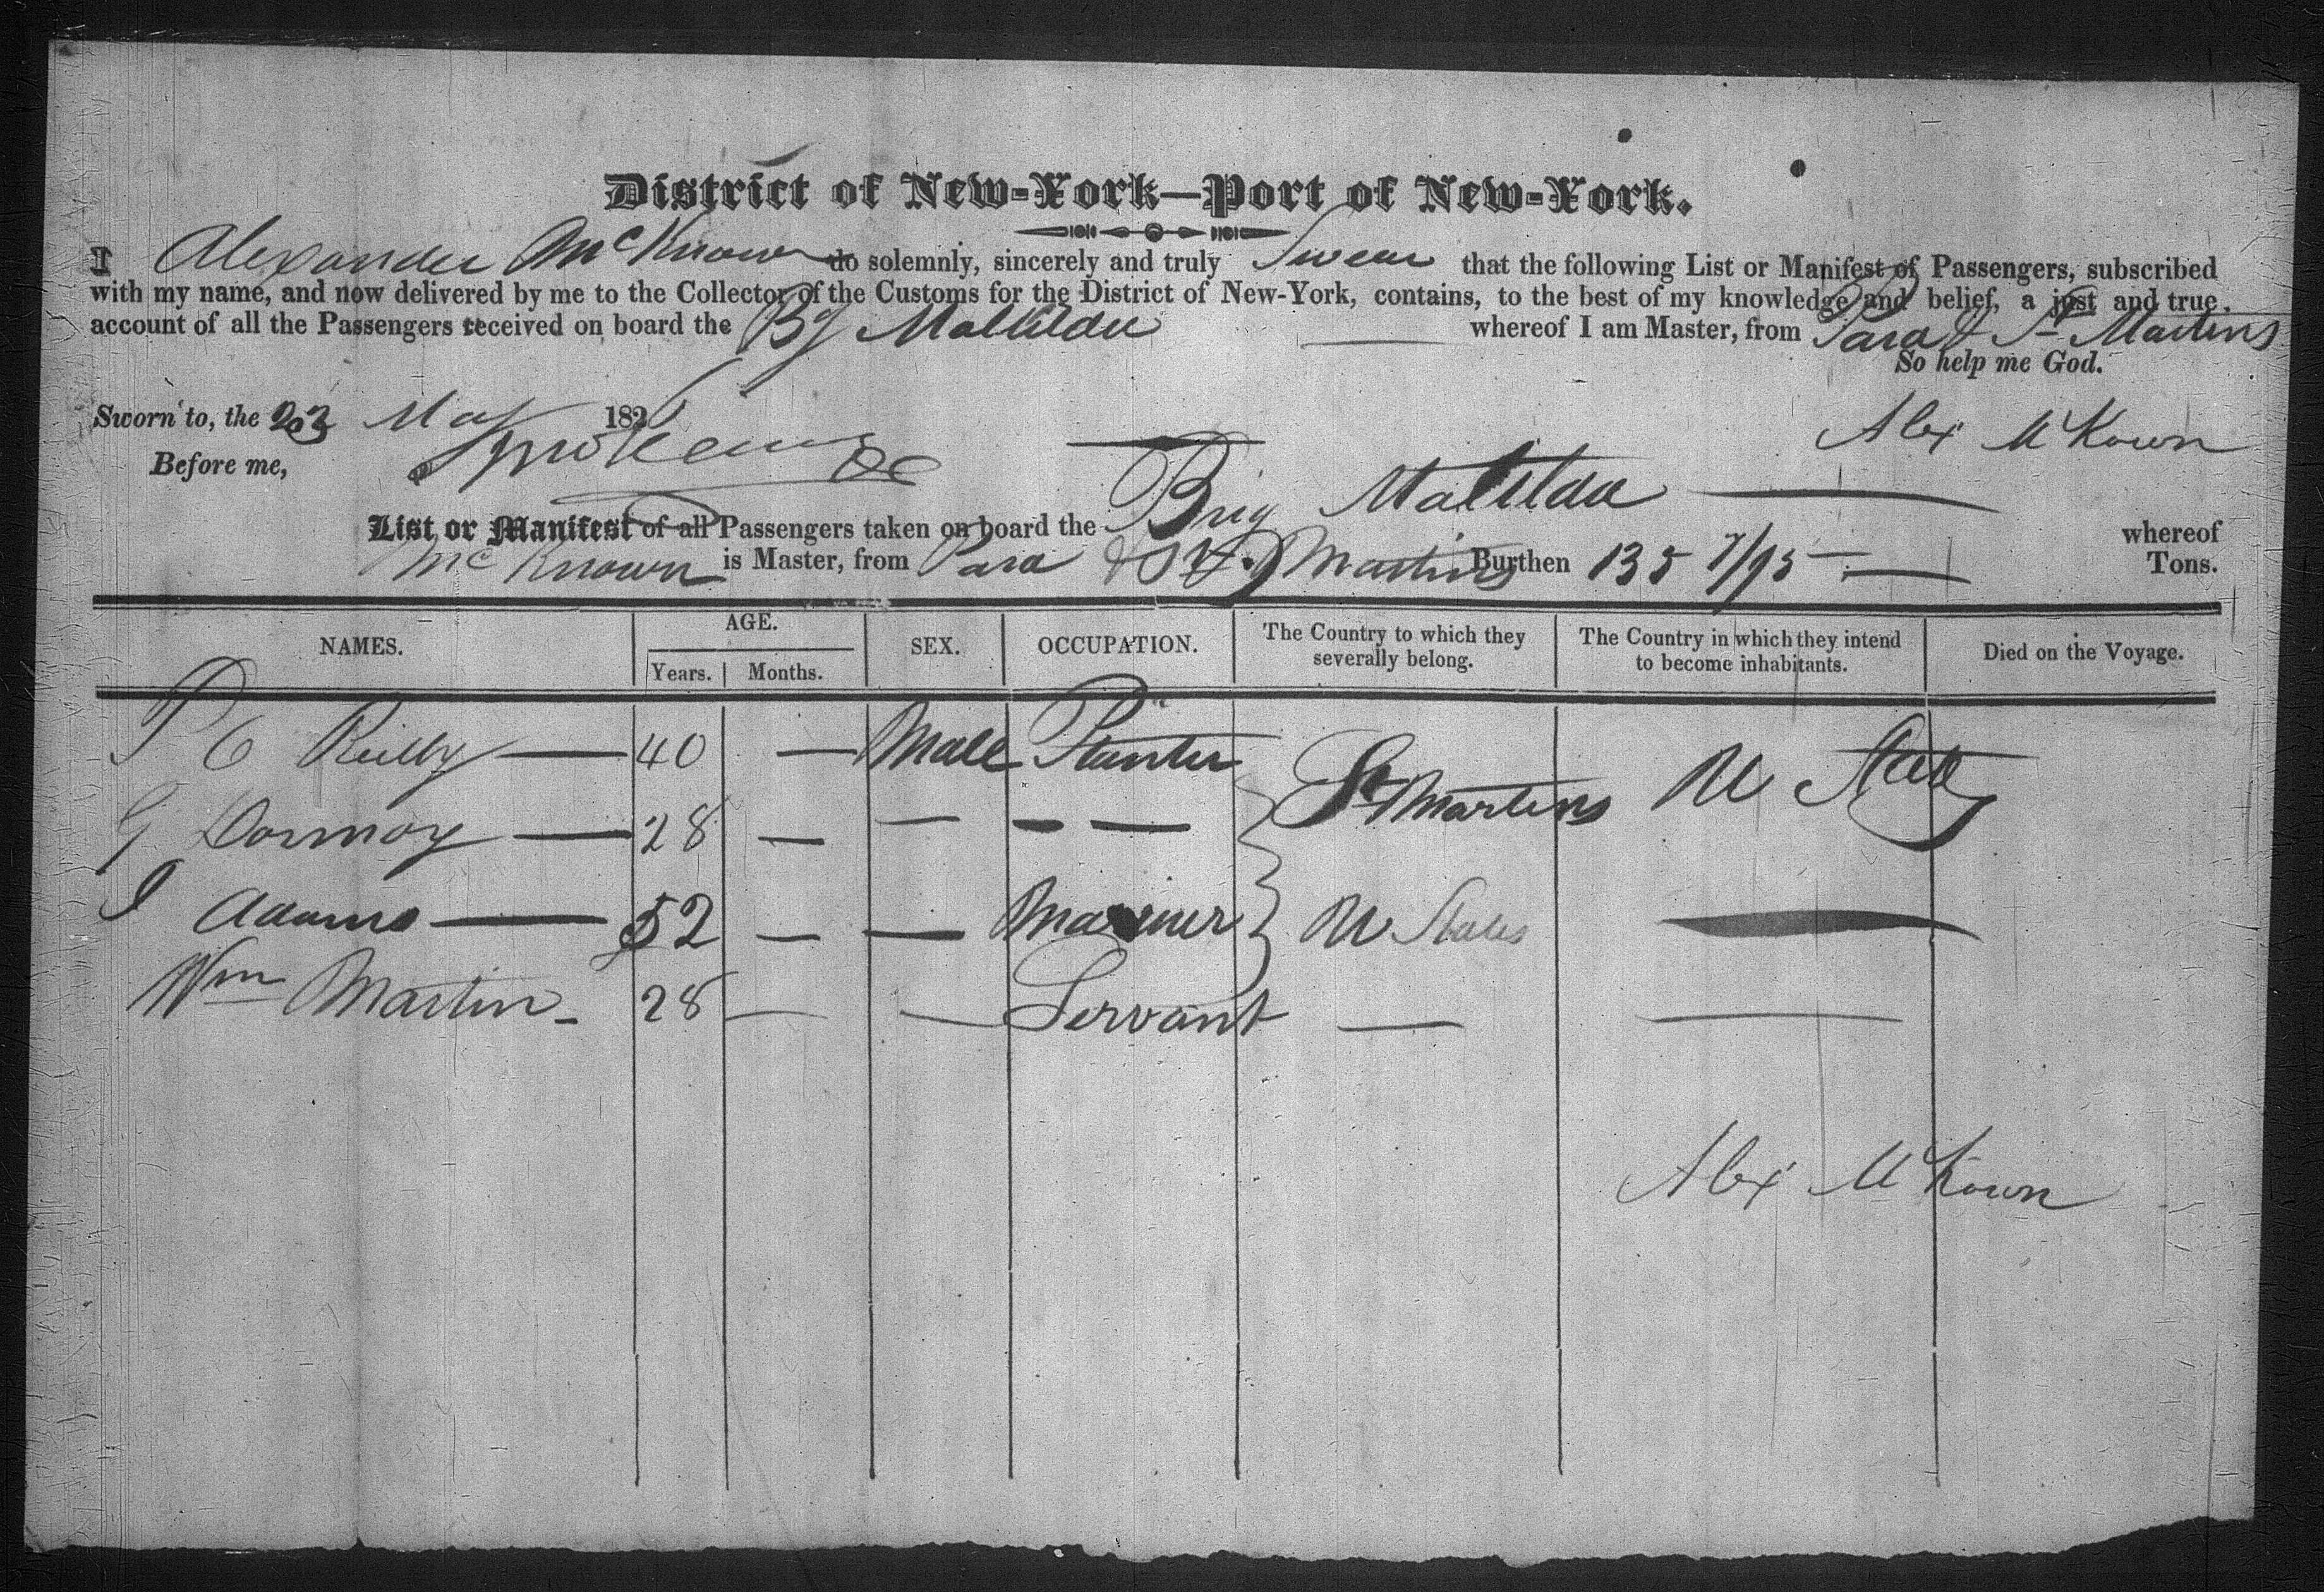 District of New-York—Port of New-York.
I Alexander McKnown do solemnly, sincerely and truly Swear that the following List or Manifest of Passengers, subscribed
with my name, and now delivered by me to the Collector of the Customs for the District of New-York, contains, to the best of my knowledge and belief, a just and true
account of all the Passengers received on board the Bg Matilda whereof I am Master, from Para & St Martins
So help me God.
Sworn to, the 23 May 182
Alex McKown
Before me,
List or Manifest of all Passengers taken on board the Brig Matilda whereof
McKnown is Master, from Para & St. Martins Burthen 135 7/95 Tons.
NAMES. AGE. SEX. OCCUPATION. The Country to which they severally belong. The Country in which they intend to become inhabitants. Died on the Voyage.
Years. Months.
P C Reilly — 40 — Male Planter St Martins U States
G Dormoy — 28 — — — —
J Adams — 52 — — Mariner U States —
Wm Martin - 28 — — Servant — —
Alex McKown